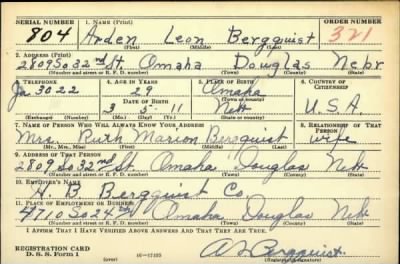 SERIAL NUMBER 1. NAME (Print) ORDER NUMBER
804 Arden Leon Bergquist 321
(First) (Middle) (Last)
2. ADDRESS (Print)
2809 So 32nd St. Omaha Douglas Nebr
(Number and street or R. F. D. number) (Town) (County) (State)
3. TELEPHONE 4. AGE IN YEARS 5. PLACE OF BIRTH 6. COUNTRY OF CITIZENSHIP
Ja 3022 29 Omaha
DATE OF BIRTH (Town or county)
3 5 11 Neb U.S.A.
(Exchange) (Number) (Mo.) (Day) (Yr.) (State or country)
7. NAME OF PERSON WHO WILL ALWAYS KNOW YOUR ADDRESS 8. RELATIONSHIP OF THAT PERSON
Mrs. Ruth Marion Bergquist wife
(Mr., Mrs., Miss) (First) (Middle) (Last)
9. ADDRESS OF THAT PERSON
2809 So 32nd St. Omaha Douglas Neb
(Number and street or R. F. D. number) (Town) (County) (State)
10. EMPLOYER'S NAME
Bergquist Co.
11. PLACE OF EMPLOYMENT OR BUSINESS
4710 So 24th Omaha Douglas Neb
(Number and street or R. F. D. number) (Town) (County) (State)
I AFFIRM THAT I HAVE VERIFIED ABOVE ANSWERS AND THAT THEY ARE TRUE.
REGISTRATION CARD
D. S. S. Form 1 (over) 16-17105 A. L. Bergquist